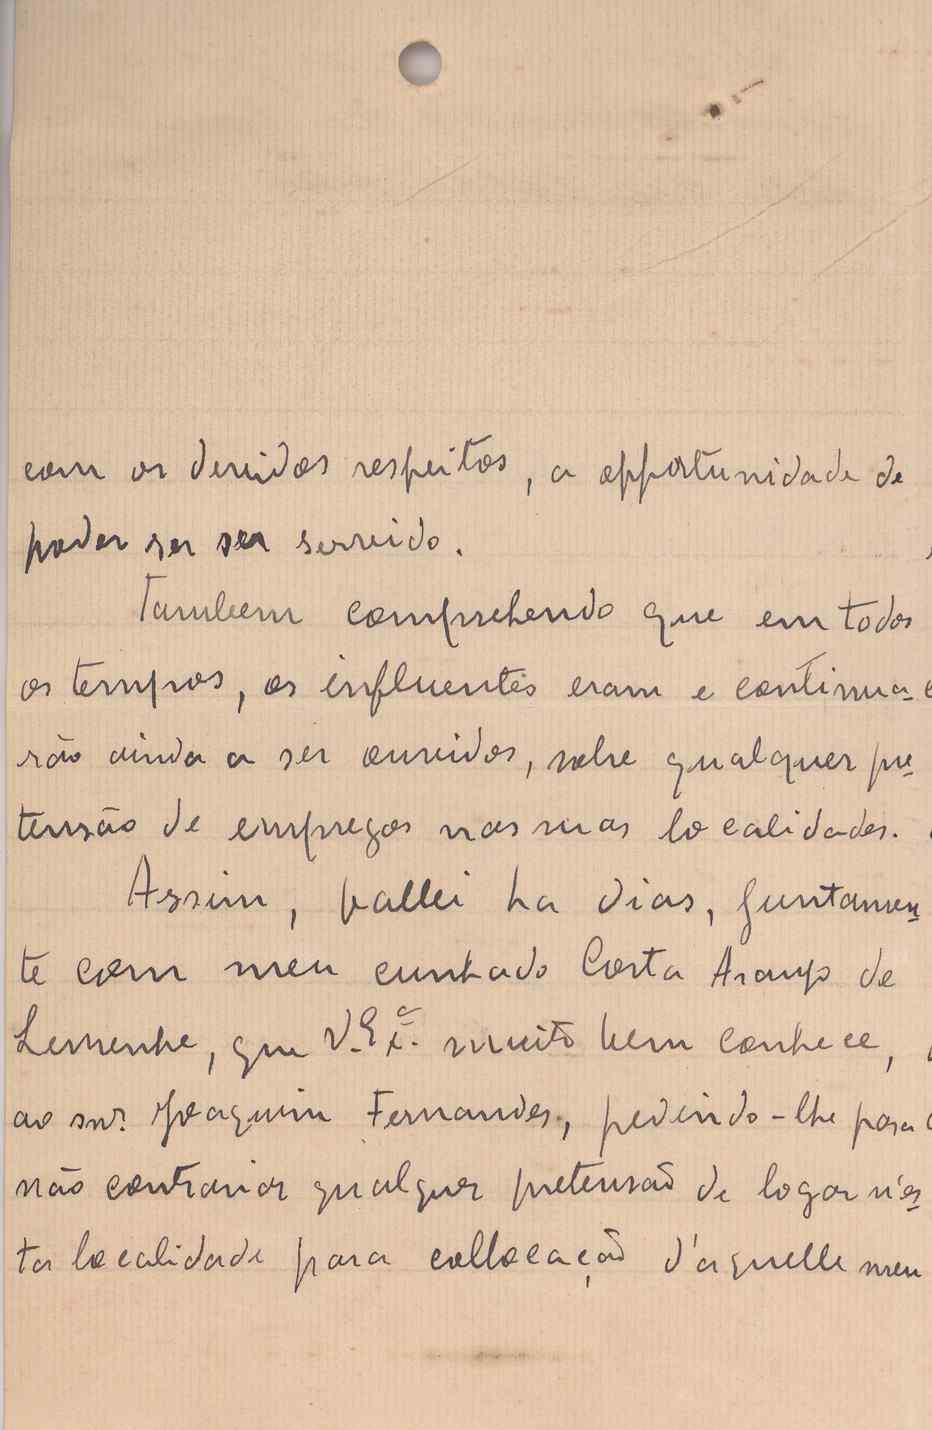 com os devidos respeitos, a opportunidade de
poder ser ser servido.
Tambem comprehendo que em todos
os tempos, os influentes eram e continua-
rão ainda a ser ouvidos, sobre qualquer pre-
tensão de empregos nas suas localidades.
Assim, fallei ha dias, juntamen-
te com meu cunhado Costa Araujo de
Lemenhe, que V. Ex.ª muito bem conhece,
ao snr. Joaquim Fernandes, pedindo-lhe para
não contrariar qualquer pretensão de logar n'es-
ta localidade para collocação d'aquelle meu